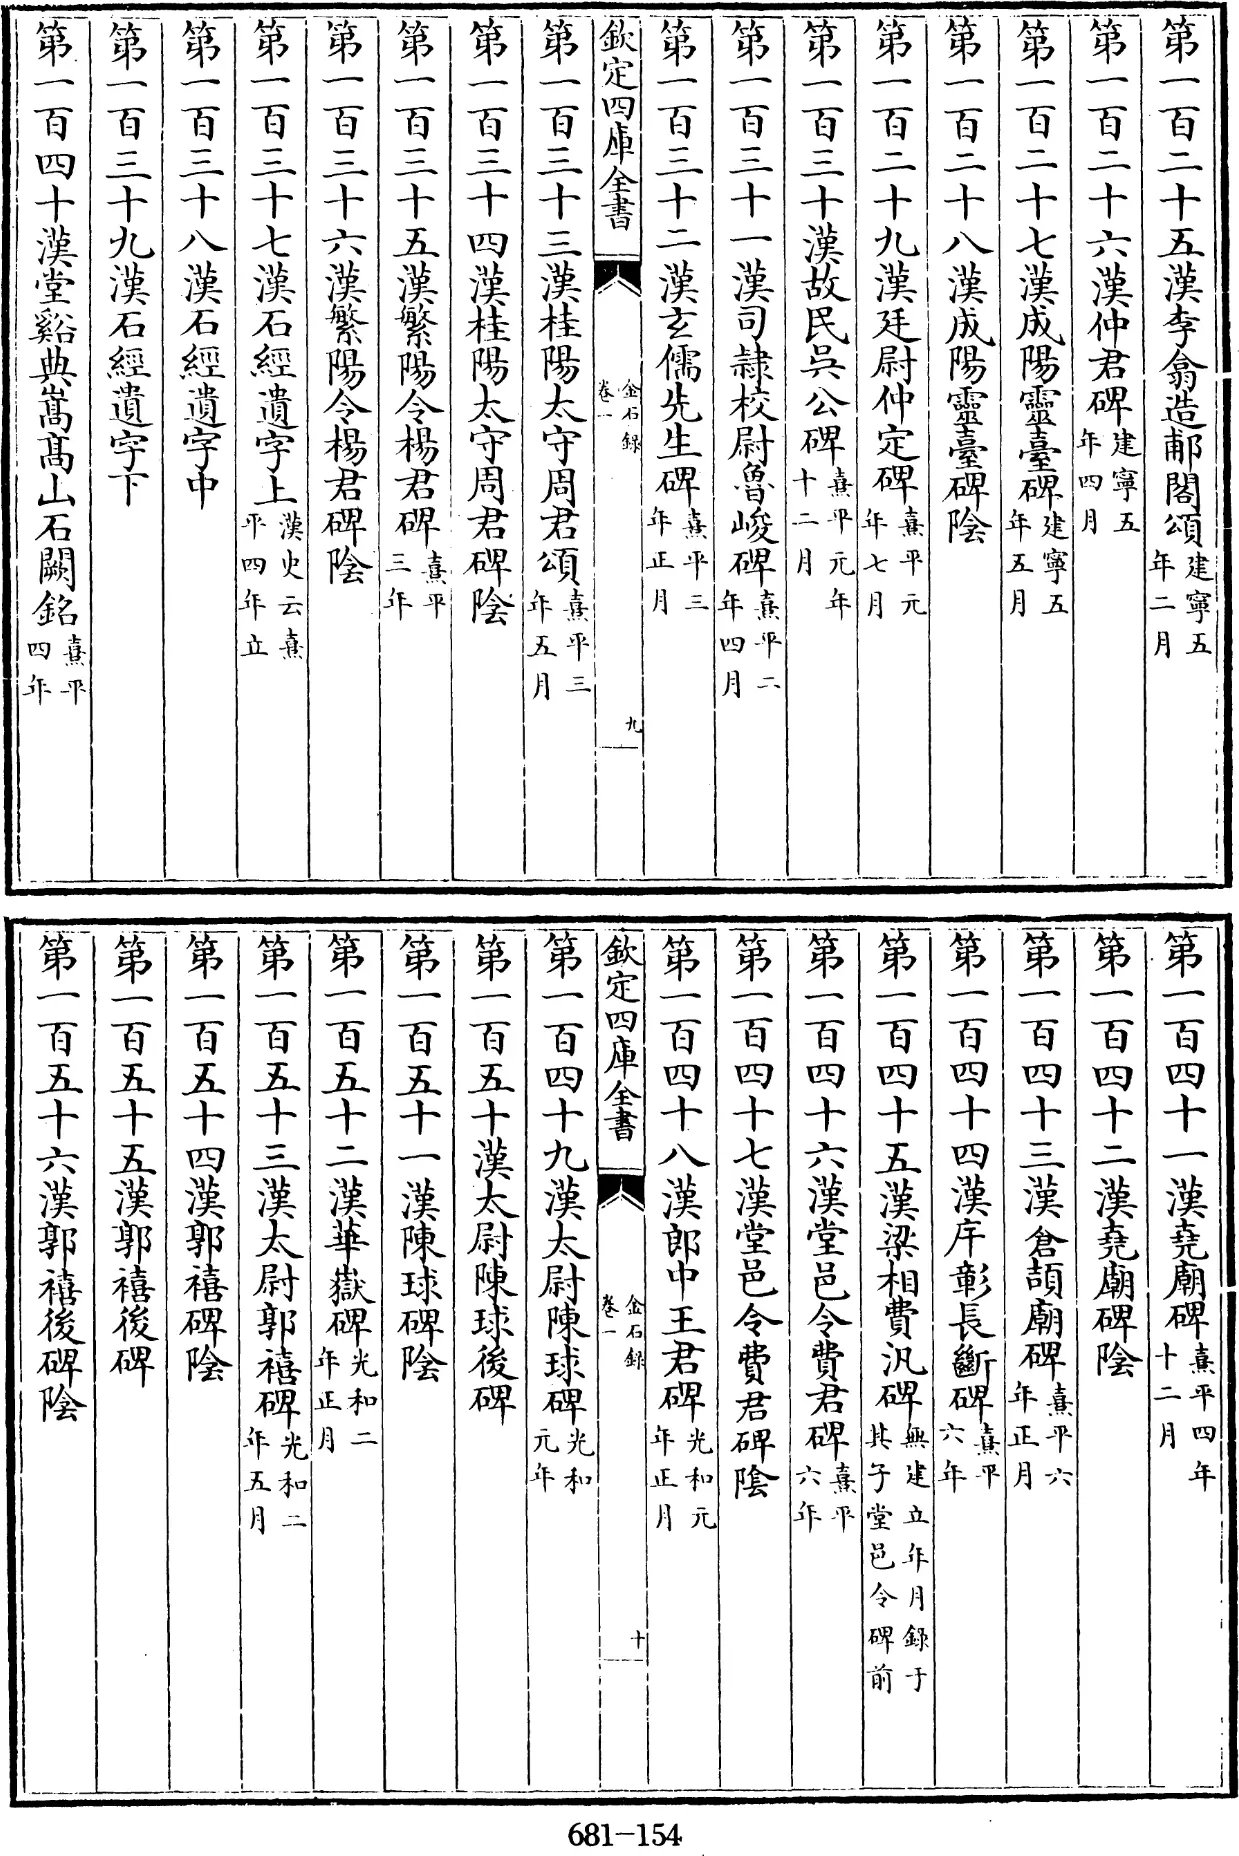 第一百二十五漢李翕造郙閣頌建寧五年二月
第一百二十六漢仲君碑建寧五年四月
第一百二十七漢成陽靈臺碑建寧五年五月
第一百二十八漢成陽靈臺碑陰
第一百二十九漢廷尉仲定碑熹平元年七月
第一百三十漢故民吳公碑熹平元年十二月
第一百三十一漢司隸校尉魯峻碑熹平二年四月
第一百三十二漢玄儒先生碑熹平三年正月
欽定四庫全書
金石錄
卷一
九
第一百三十三漢桂陽太守周君頌熹平三年五月
第一百三十四漢桂陽太守周君碑陰
第一百三十五漢繁陽令楊君碑熹平三年
第一百三十六漢繁陽令楊君碑陰
第一百三十七漢石經遺字上漢史云熹平四年立
第一百三十八漢石經遺字中
第一百三十九漢石經遺字下
第一百四十漢堂谿典嵩髙山石闕銘熹平四年
第一百四十一漢堯廟碑熹平四年十二月
第一百四十二漢堯廟碑陰
第一百四十三漢倉頡廟碑熹平六年正月
第一百四十四漢斥彰長斷碑熹平六年
第一百四十五漢梁相費汎碑無建立年月録于其子堂邑令碑前
第一百四十六漢堂邑令費君碑熹平六年
第一百四十七漢堂邑令費君碑陰
第一百四十八漢郎中王君碑光和元年正月
欽定四庫全書
金石錄
卷一
十
第一百四十九漢太尉陳球碑光和元年
第一百五十漢太尉陳球後碑
第一百五十一漢陳球碑陰
第一百五十二漢華嶽碑光和二年正月
第一百五十三漢太尉郭禧碑光和二年五月
第一百五十四漢郭禧碑陰
第一百五十五漢郭禧後碑
第一百五十六漢郭禧後碑陰
681-154